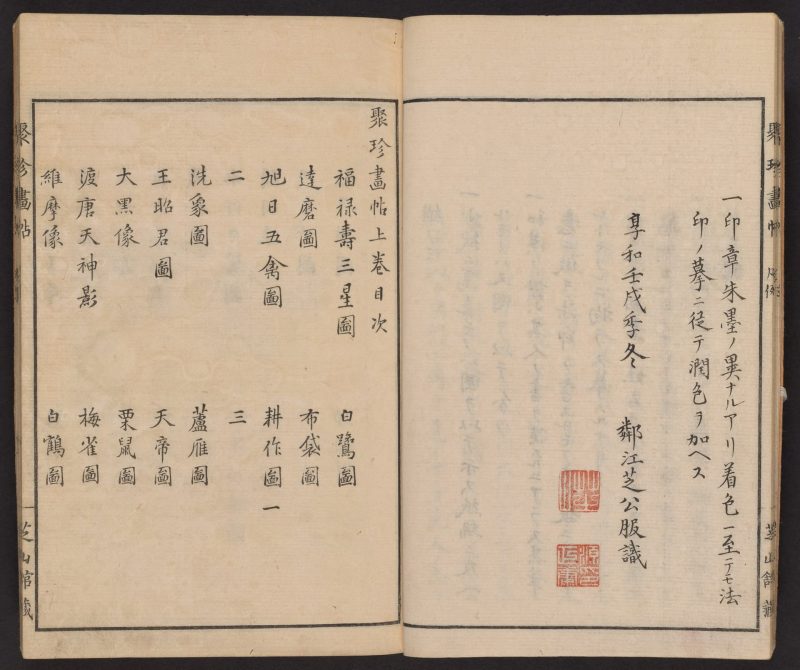 一印章朱墨ノ異ナルアリ着色ニ至テモ法
印ノ摹ニ従テ潤色ヲ加ヘス
享和壬戌季冬 鄰江芝公服識
聚珍畫帖上卷目次
福禄壽三星圖 白鷺圖
達磨圖 布袋圖
旭日五禽圖 耕作圖 一
二 三
洗象圖 蘆雁圖
王昭君圖 天帝圖
大黑像 栗鼠圖
渡唐天神影 梅雀圖
維摩像 白鶴圖
聚珍畫帖
一芝山館藏
聚珍畫帖
芝山館藏